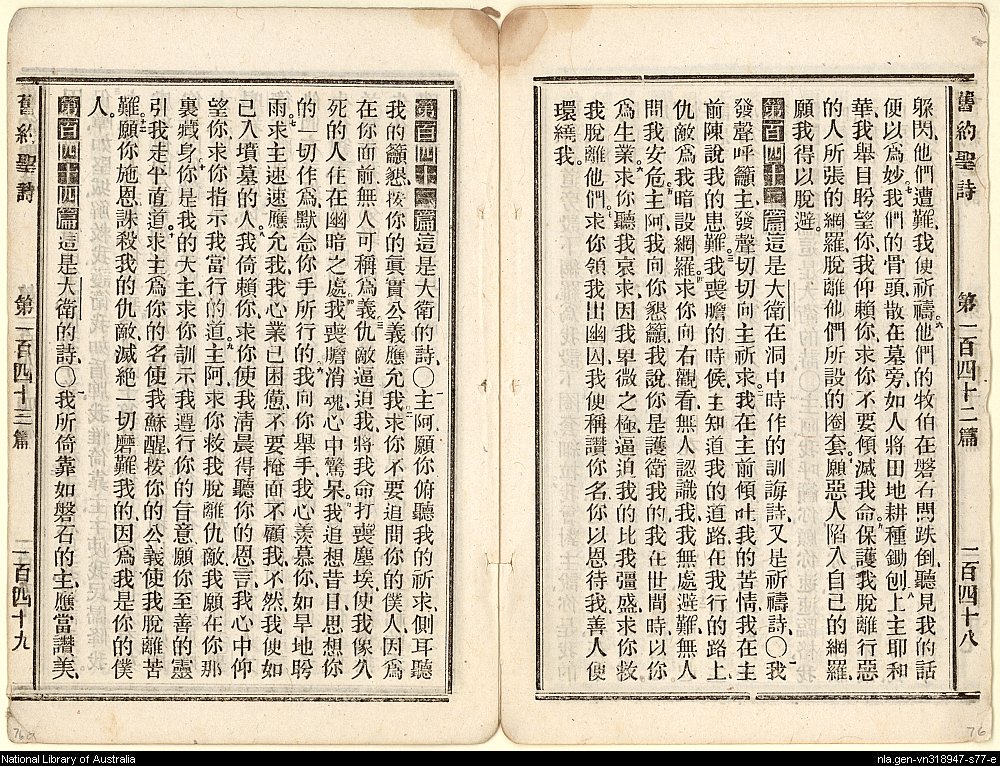 舊約聖詩 第一百四十二篇 二百四十八
躱閃、他們遭難、我便祈禱。他們的牧伯在磐石間跌倒、聽見我的話
便以爲妙。我們的骨頭散在墓旁、如人將田地耕種鋤刨。主主耶和
華、我舉目盼望你、我仰賴你、求你不要傾滅我命。保護我脫離行惡
的人所張的網羅、脫離他們所設的圈套。願惡人陷入自己的網羅、
願我得以脫避。
第百四十二篇這是大衛在洞中時作的訓誨詩、又是祈禱詩、〇我
發聲呼籲主、發聲切切向主祈求。我在主前傾吐我的苦情、我在主
前陳說我的患難。我喪膽的時候、主知道我的道路、在我行的路上、
仇敵爲我暗設網羅。求你向右觀看、無人認識我、我無處避難、無人
問我安危。主阿、我向你懇籲、我說你是護衛我的、我在世間時、以你
爲生業。求你聽我哀求、因我卑微之極、逼迫我的比我彊盛、求你救
我脫離他們。求你領我出幽囚、我便稱讚你名、你以恩待我、善人便
環繞我。
第百四十三篇這是大衛的詩、〇主阿、願你俯聽我的祈求、側耳聽
我的籲懇、按你的眞實公義應允我。求你不要追問你的僕人、因爲
在你面前、無人可稱爲義。仇敵逼迫我、將我命打喪塵埃、使我像久
死的人、住在幽暗之處。我喪膽消魂、心中驚呆。我追想昔日、思想你
的一切作爲、默念你手所行的。我向你舉手、我心羨慕你、如旱地盼
雨。求主速速應允我、我心業已困憊、不要掩面不顧我、不然、我便如
已入墳墓的人。我倚賴你、求你使我淸晨得聽你的恩言、我心中仰
望你、求你指示我當行的道。主阿、求你救我脫離仇敵、我願在你那
裏藏身。你是我的天主、求你訓示我遵行你的旨意、願你至善的靈
引我走平直道。求主爲你的名、使我蘇醒、按你的公義、使我脫離苦
難。願你施恩、誅殺我的仇敵、滅絕一切磨難我的、因爲我是你的僕
人。
第百四十四篇這是大衛的詩、〇我所倚靠如磐石的主、應當讚美、
舊約聖詩 第一百四十三篇 二百四十九
76a
76
National Library of Australia
nla.gen-vn318947-s77-e